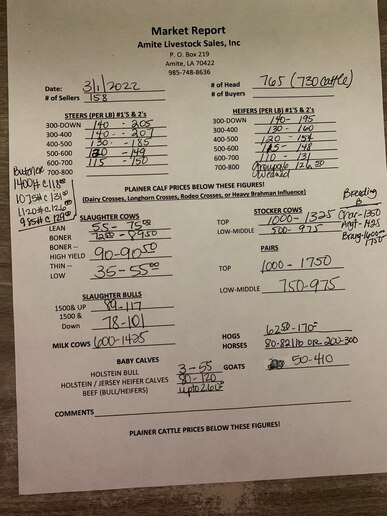 Market Report
Amite Livestock Sales, Inc
P. O. Box 219
Amite, LA 70422
985-748-8636
Date: 3/1/2022 # of Head 765 (730 cattle)
# of Sellers 158 # of Buyers
STEERS (PER LB) #1'S & 2's HEIFERS (PER LB) #1'S & 2's
300-DOWN 140 - 205 300-DOWN 140 - 195
300-400 140 - 207 300-400 130 - 160
400-500 130 - 185 400-500 120 - 154
500-600 120 - 149 500-600 115 - 148
600-700 115 - 150 600-700 110 - 131
700-800 700-800 126.50
Weaned
1400# C 118.00
1075# C 131.00
1120# C 126.00
955# C 129.00
PLAINER CALF PRICES BELOW THESE FIGURES!
(Dairy Crosses, Longhorn Crosses, Rodeo Crosses, or Heavy Brahman Influence)
Breeding
B
Char-1350
Ang-1425
Brang-1600-1750
SLAUGHTER COWS STOCKER COWS
LEAN 55 - 75.00 TOP 1000 - 1325
BONER 72.50 - 89.50 LOW-MIDDLE 500 - 975
BONER --
HIGH YIELD 90-90.50 PAIRS
THIN -- TOP 1000 - 1750
LOW 35-55.00 LOW-MIDDLE 750-975
SLAUGHTER BULLS
1500& UP 89-117
1500 &
Down 78-101
MILK COWS 600-1425 HOGS 62.50-170
HORSES 80-82 lb OR 200-300
BABY CALVES GOATS 50-410
HOLSTEIN BULL 3 - 55
HOLSTEIN / JERSEY HEIFER CALVES 80 - 120
BEEF (BULL/HEIFERS) up to 260
COMMENTS
PLAINER CATTLE PRICES BELOW THESE FIGURES!